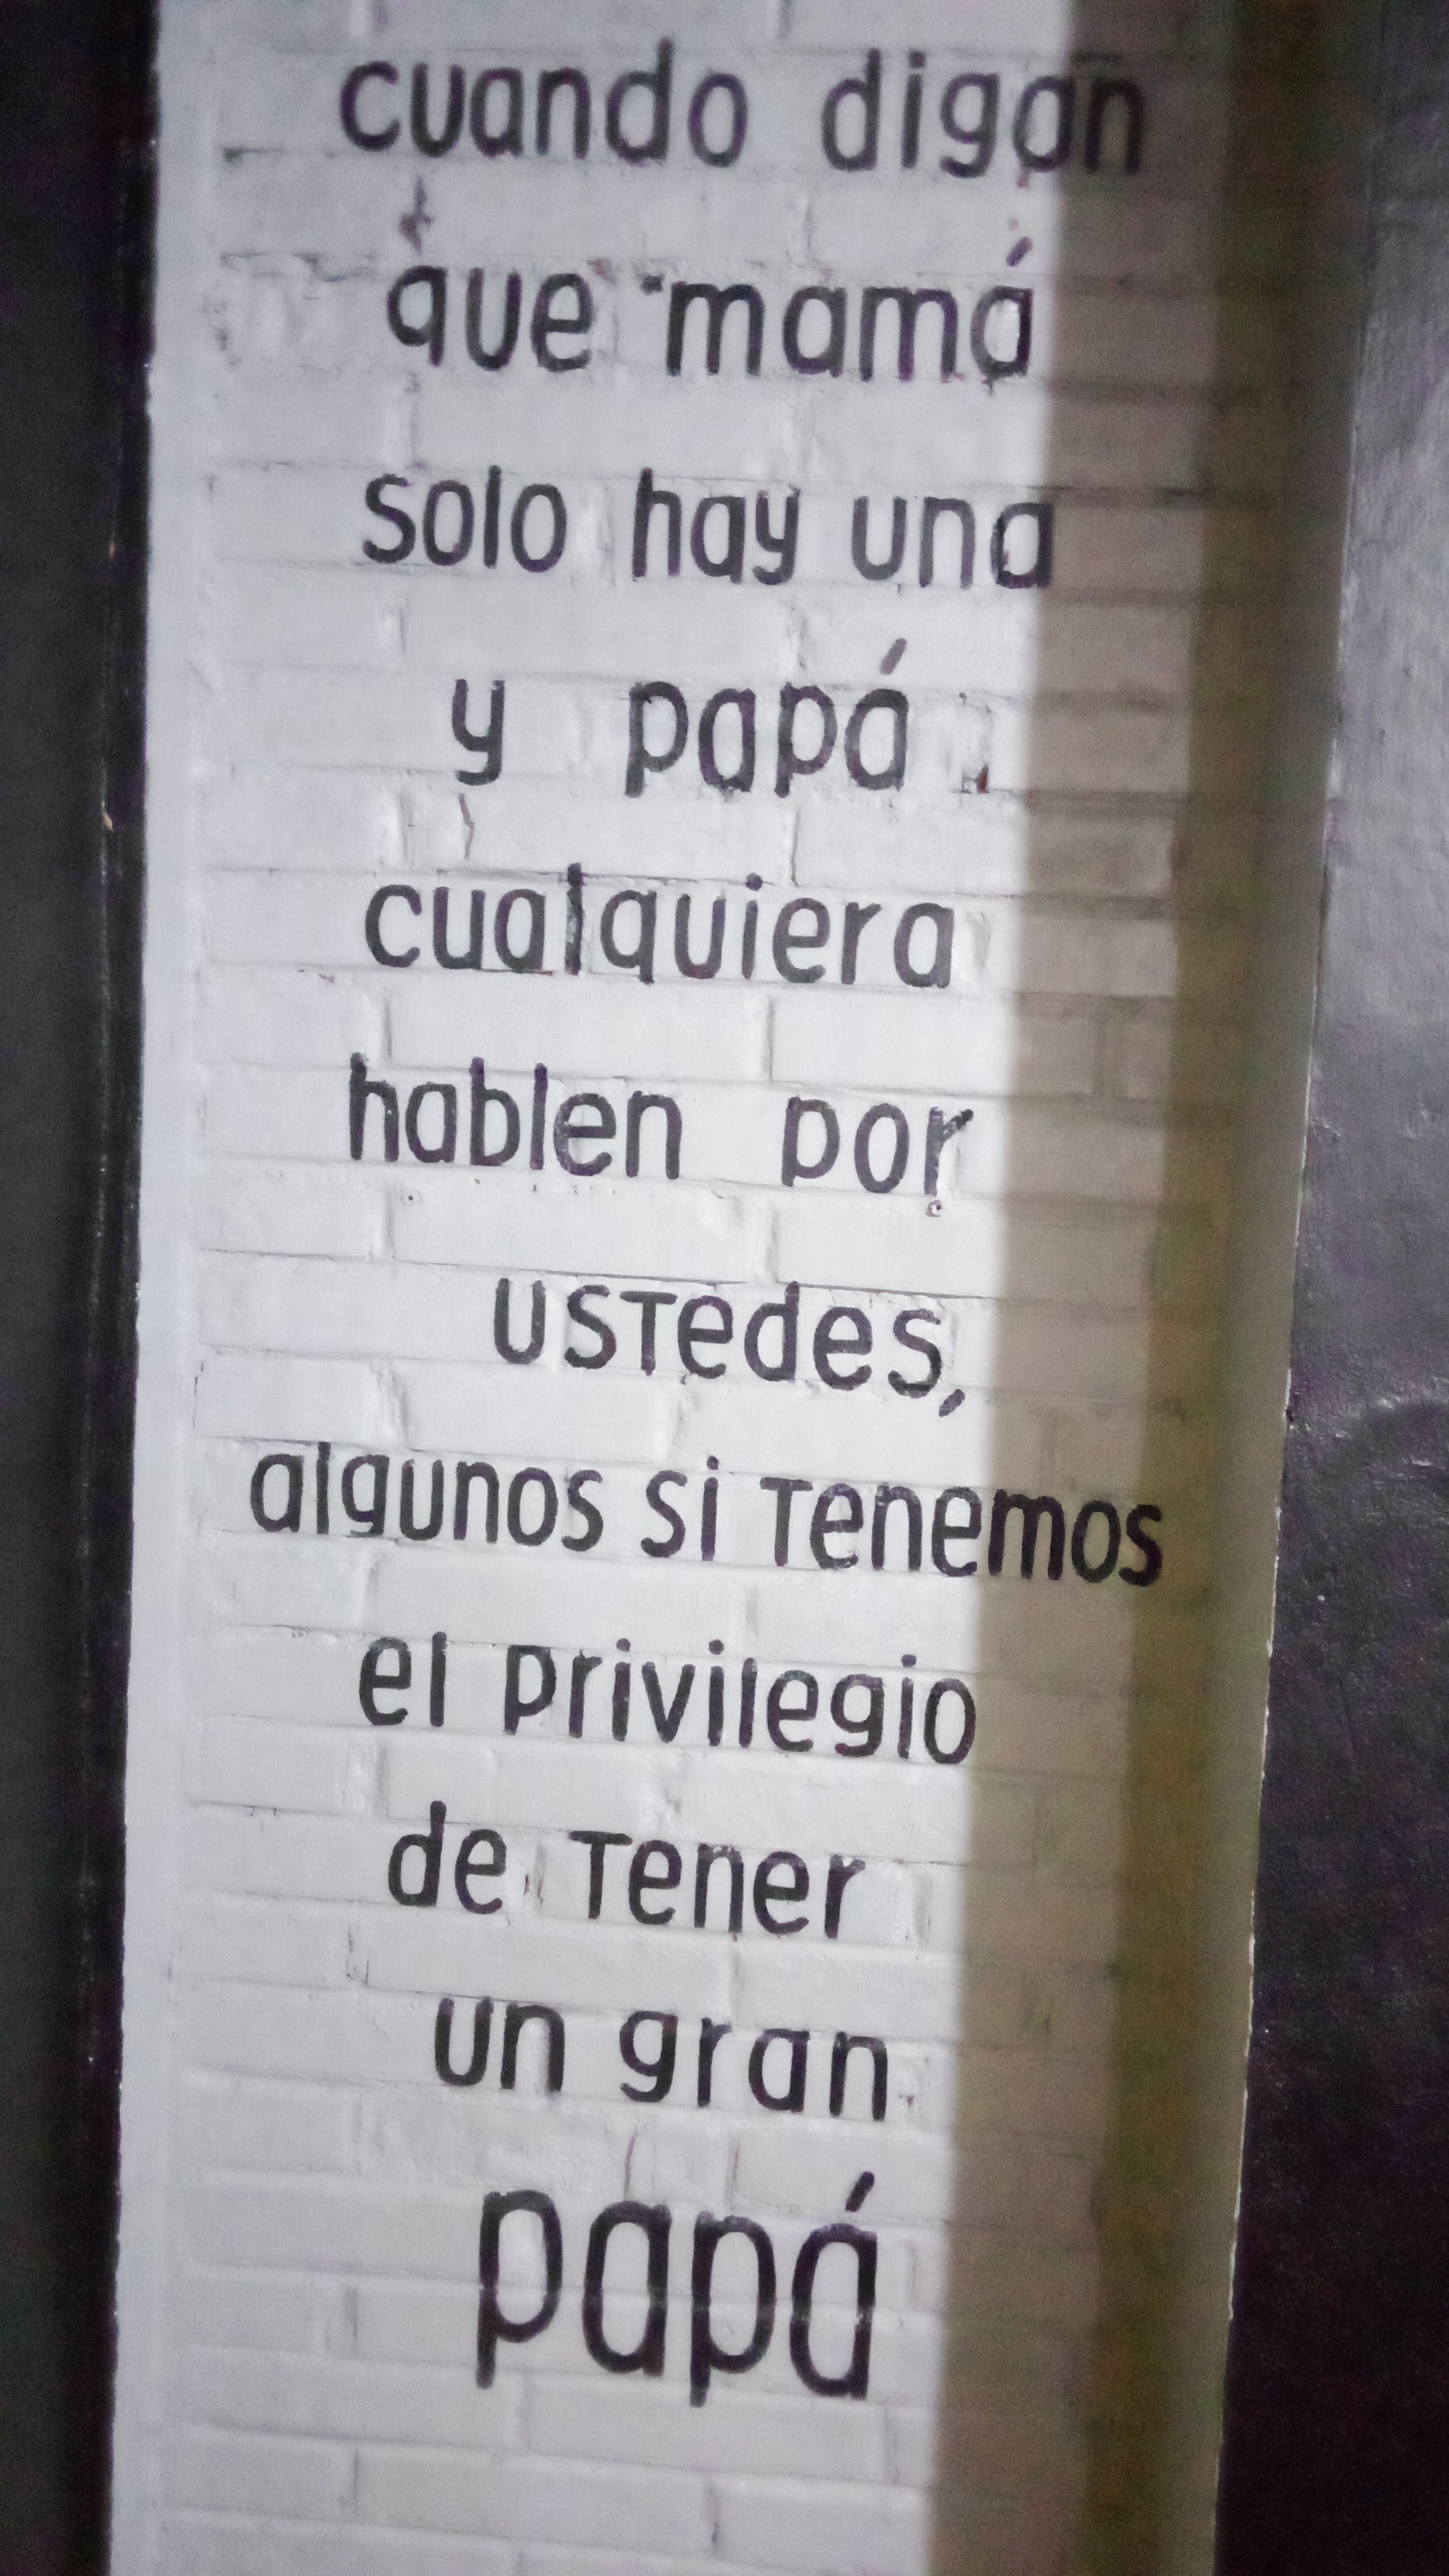 cuando digan
que mamá
solo hay una
y papá
cualquiera
hablen por
ustedes,
algunos si tenemos
el privilegio
de tener
un gran
papá